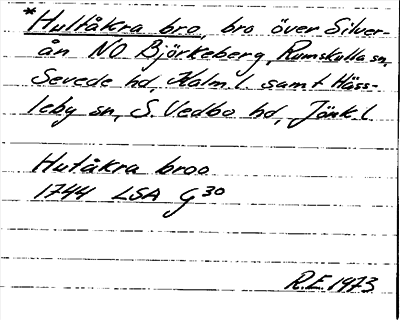 *Hultåkra bro, bro över Silver-
ån NO Björkeberg, Rumskulla sn,
Sevede hd, Kalm. l. samt Häss-
leby sn, S. Vedbo hd, Jönk. l
Hutåkra broo
1744 LSA G 30
R.E. 1973